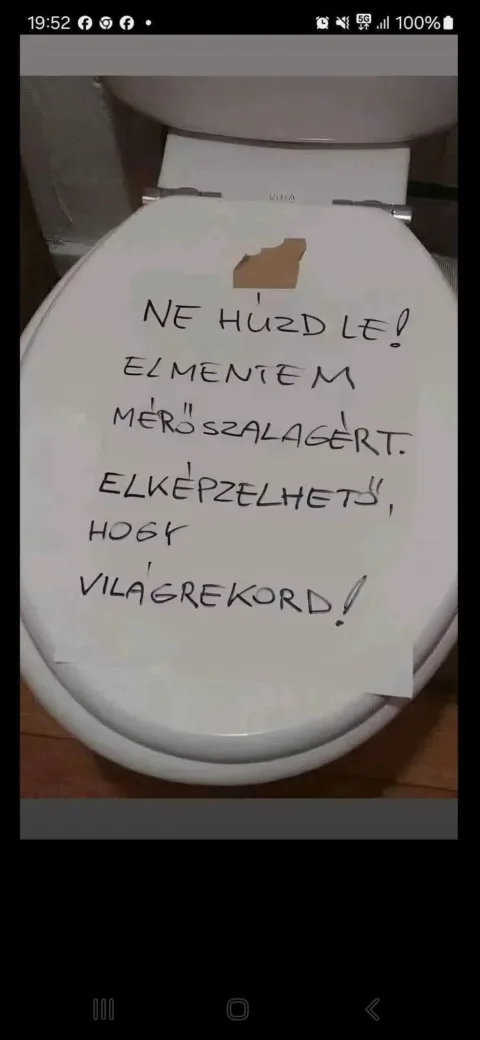 19:52
5G
100%
NE HÚZD LE!
ELMENTEM
MÉRŐSZALAGÉRT.
ELKÉPZELHETŐ,
HOGY
VILÁGREKORD!